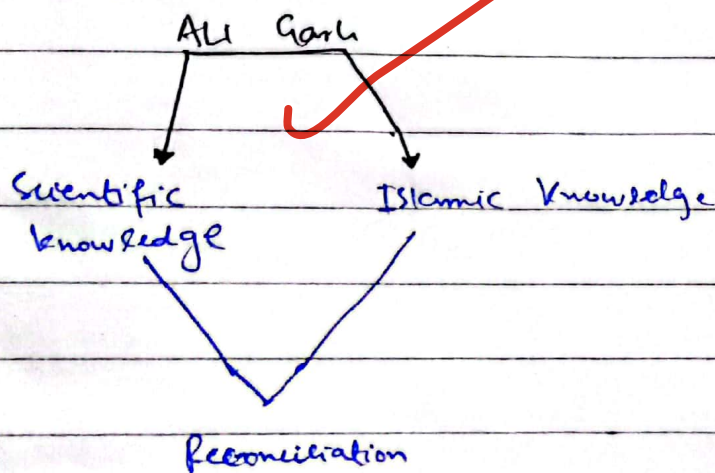 Ali Garh
Scientific
knowledge
Islamic knowledge
Reconciliation